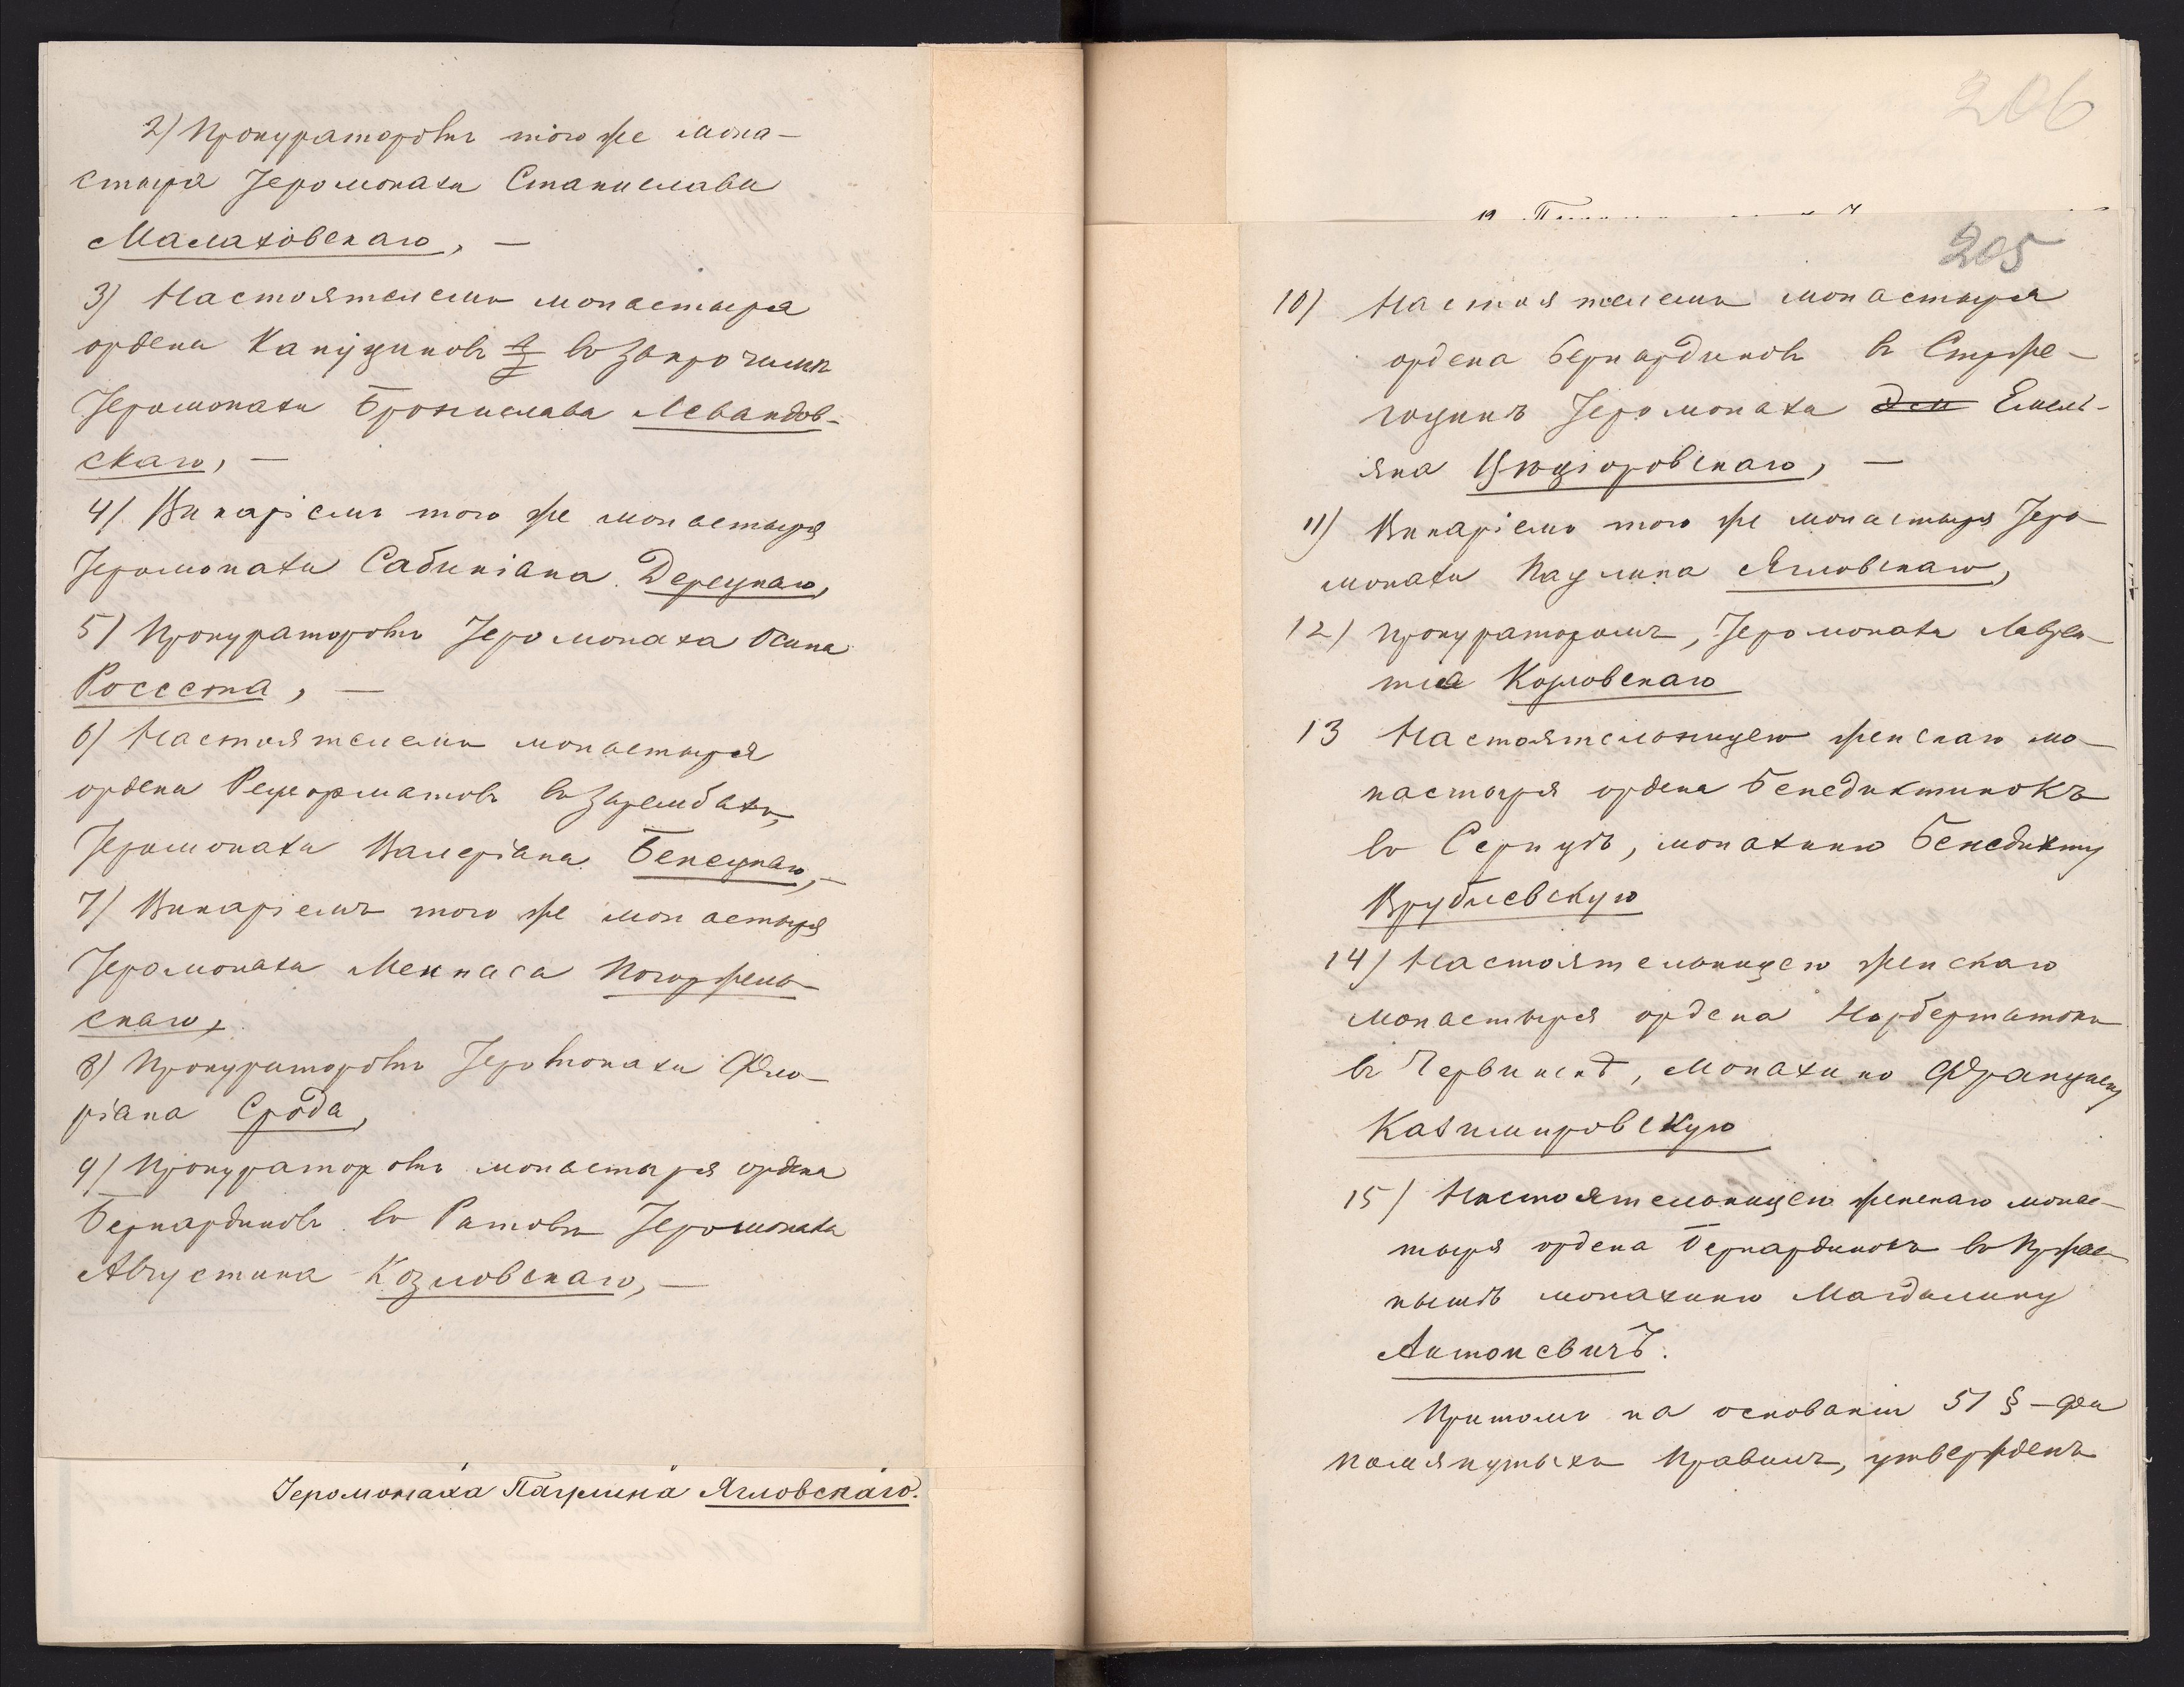 2) Прокураторовъ того же мона-
стыря Іеромонаха Станислава
Малаховскаго, —
3) Настоятелемъ монастыря
ордена Капуциновъ въ Закрочимѣ
Іеромонаха Бронислава Левандов-
скаго, —
4) Викаріемъ того же монастыря
Іеромонаха Сабиніана Дерецкаго,
5) Прокураторовъ Іеромонаха Осипа
Россета, —
6) Настоятелемъ монастыря
ордена Реформатовъ въ Зарембахъ,
Іеромонаха Валеріана Бенецкаго, —
7) Викаріемъ того же монастыря
Іеромонаха Погоржель-
скаго,
8) Прокураторовъ Іеромонаха Фло-
ріана Срода,
9) Прокураторовъ монастыря ордена
Бернардиновъ въ Ратовѣ Іеромонаха
Августина Козловскаго, —
Іеромонаха Паулина Ягловскаго.
206
205
10) Настоятелемъ монастыря
ордена Бернардиновъ въ Стрже-
гоцинѣ Іеромонаха Емель-
яна —
11) Викаріемъ того же монастыря Іеро-
монаха Паулина Ягловскаго,
12) Прокураторомъ, Іеромонаха Лаврен-
тія Козловскаго
13 Настоятельницею женскаго мо-
настыря ордена Бенедиктинокъ
въ Серпцѣ, монахиню Бенедикту
Врублевскую
14) Настоятельницею женскаго
монастыря ордена Норбертанокъ
въ Червинскѣ, монахиню Францишку
Казимировскую
15) Настоятельницею женскаго монас-
тыря ордена Бернардинокъ въ Пржас-
нышѣ монахиню Магдалину
Антоневичъ.
Притомъ на основаніи 51 §-фа
помянутыхъ правилъ, утвержденъ